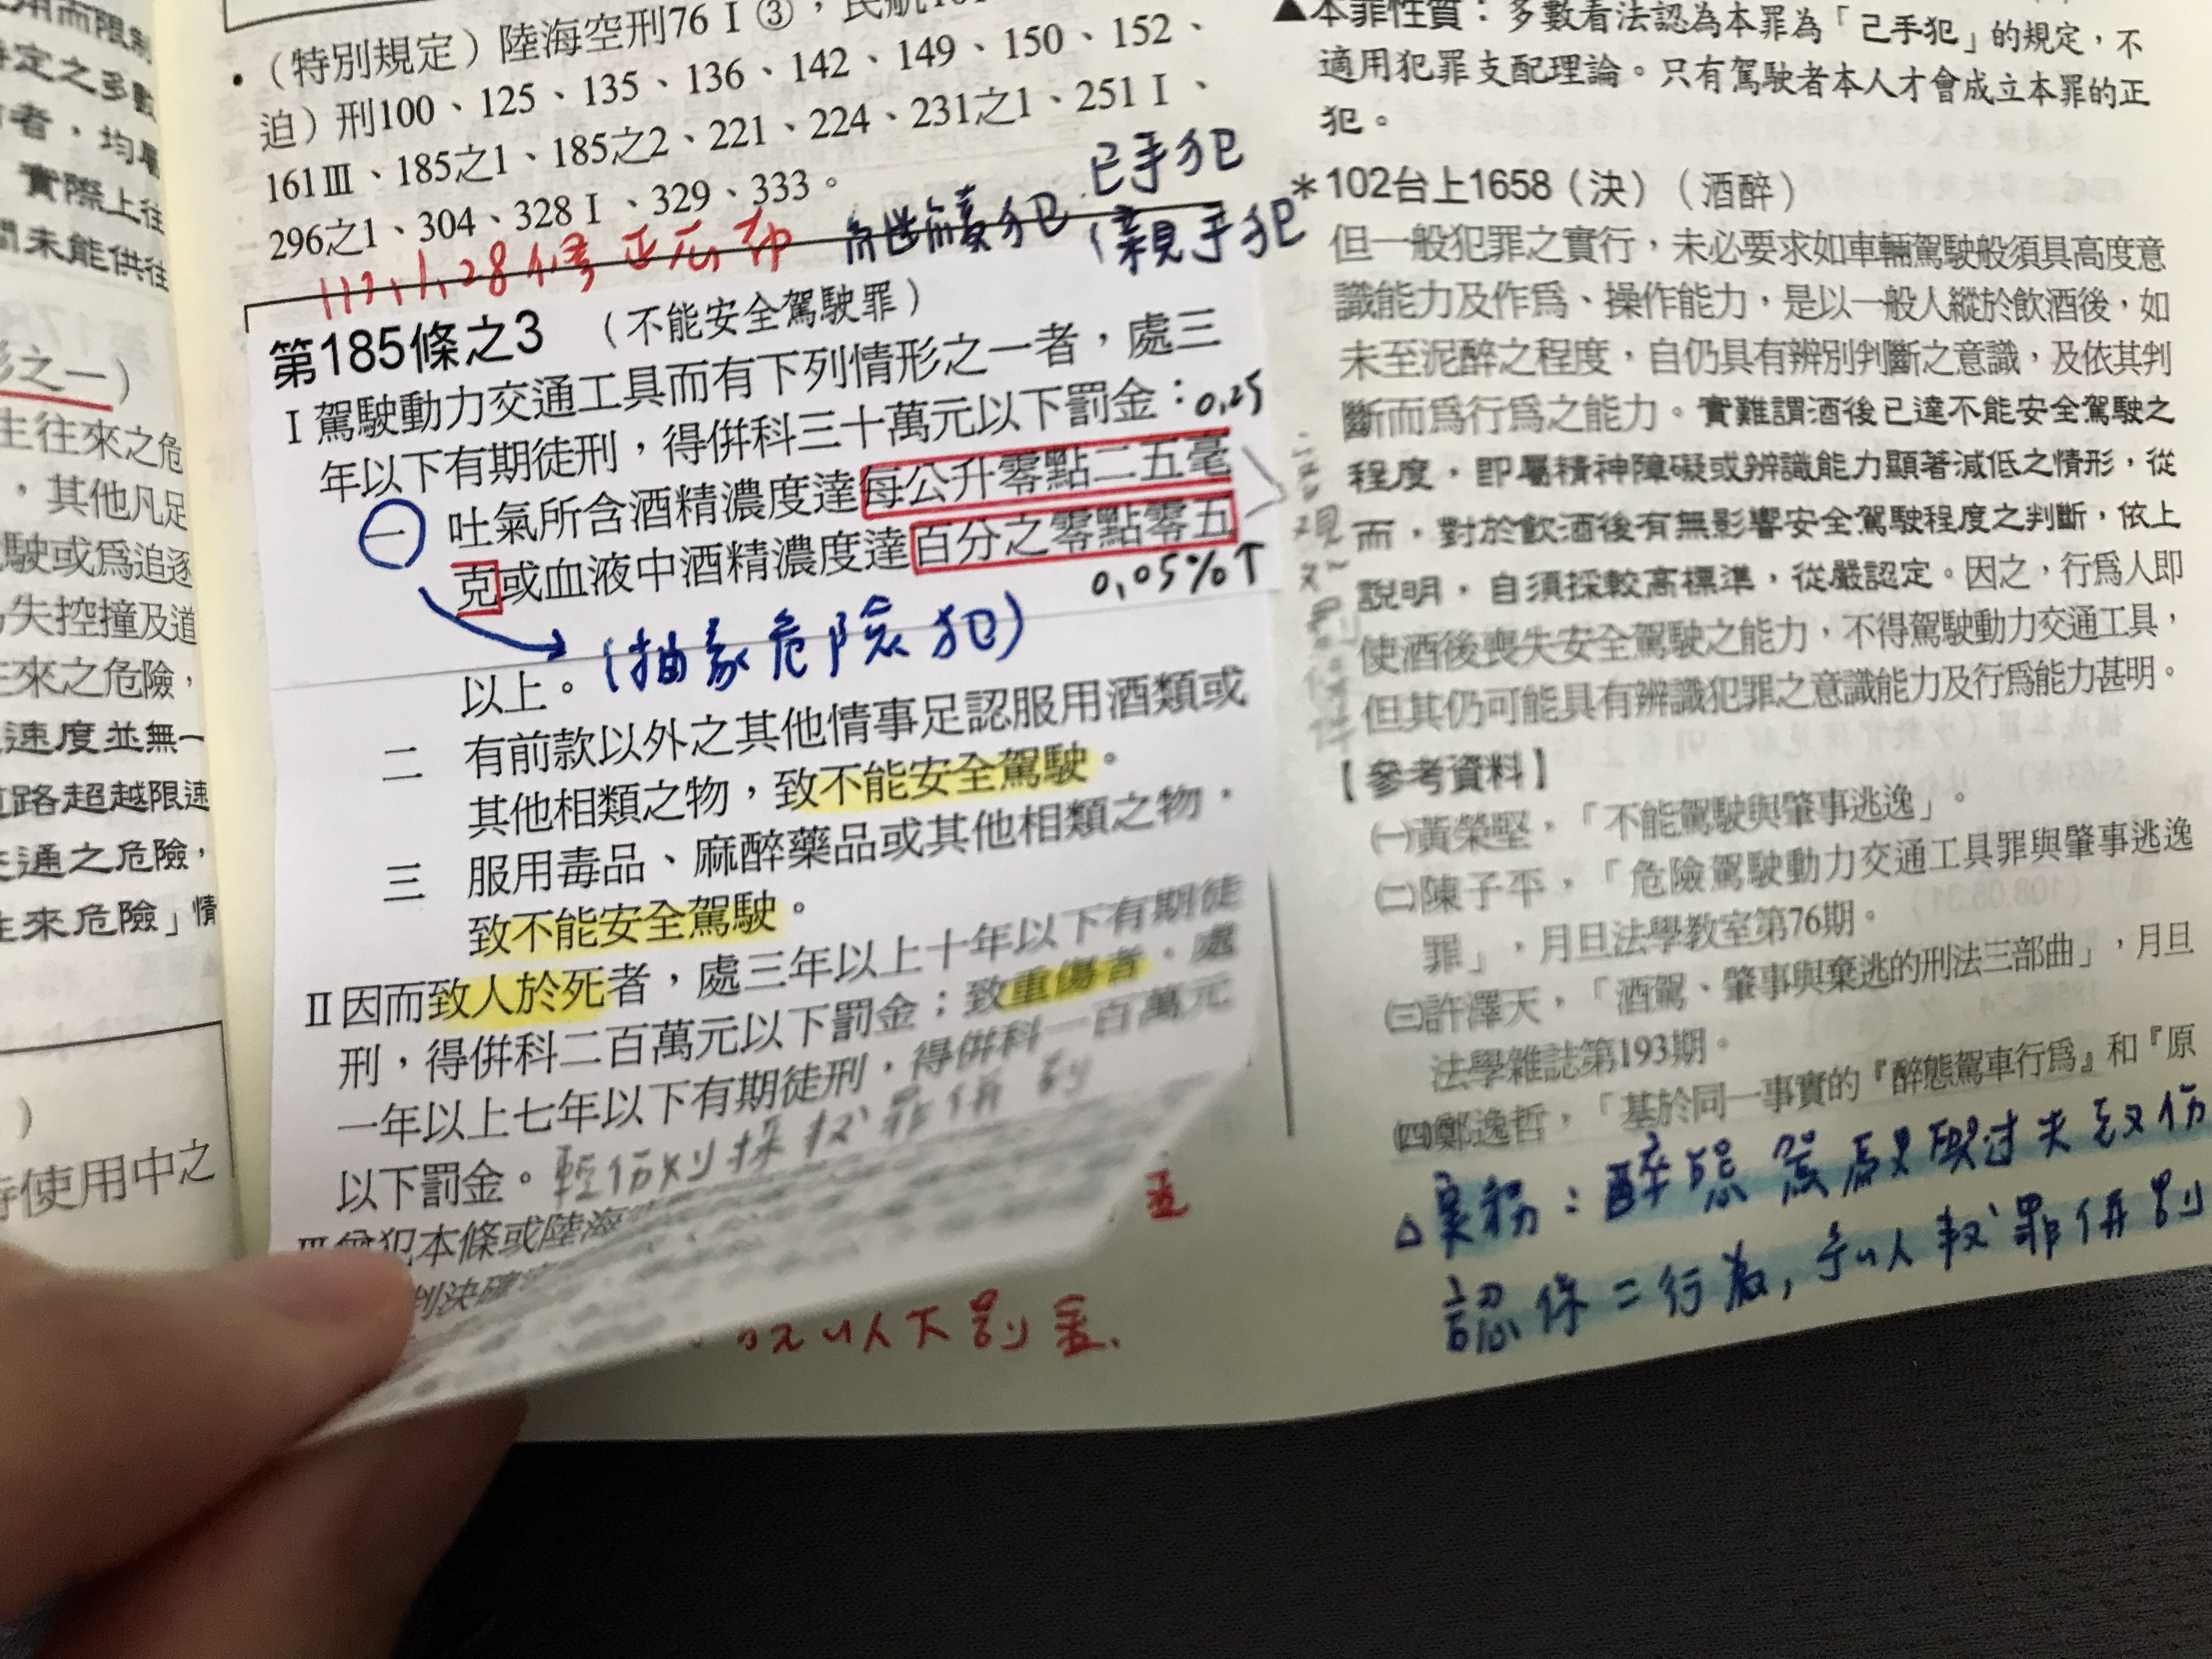 用而限制
特定之多數
者，均屬
實際上往
間未能供往
之一)
生往來之危
，其他凡足
駛或為追逐
失控撞及道
往來之危險，
速度並無一
道路超越限速
交通之危險，
往來危險」情
)
使用中之
•（特別規定）陸海空刑76Ⅰ③，民航
迫）刑100、125、135、136、142、149、150、152、
161Ⅲ、185之1、185之2、221、224、231之1、251Ⅰ、
296之1、304、328Ⅰ、329、333。
繼續犯
己手犯
(親手犯
第185條之3 （不能安全駕駛罪）
Ⅰ駕駛動力交通工具而有下列情形之一者，處三
年以下有期徒刑，得併科三十萬元以下罰金：
0.25
一 吐氣所含酒精濃度達每公升零點二五毫
克或血液中酒精濃度達百分之零點零五
0.05%↑
(抽象危險犯)
以上。
二 有前款以外之其他情事足認服用酒類或
其他相類之物，致不能安全駕駛。
三 服用毒品、麻醉藥品或其他相類之物，
致不能安全駕駛。
Ⅱ因而致人於死者，處三年以上十年以下有期徒
刑，得併科二百萬元以下罰金；致重傷者，處
一年以上七年以下有期徒刑，得併科一百萬元
以下罰金。
輕傷則採數罪併罰
Ⅲ曾犯本條或陸海
判決確
以下罰金.
▲本罪性質：多數看法認為本罪為「己手犯」的規定，不
適用犯罪支配理論。只有駕駛者本人才會成立本罪的正
犯。
＊102台上1658（決）（酒醉）
但一般犯罪之實行，未必要求如車輛駕駛般須具高度意
識能力及作為、操作能力，是以一般人縱於飲酒後，如
未至泥醉之程度，自仍具有辨別判斷之意識，及依其判
斷而為行為之能力。實難謂酒後已達不能安全駕駛之
程度，即屬精神障礙或辨識能力顯著減低之情形，從
而，對於飲酒後有無影響安全駕駛程度之判斷，依上
說明，自須採較高標準，從嚴認定。因之，行為人即
使酒後喪失安全駕駛之能力，不得駕駛動力交通工具，
但其仍可能具有辨識犯罪之意識能力及行為能力甚明。
【參考資料】
㈠黃榮堅，「不能駕駛與肇事逃逸」。
㈡陳子平，「危險駕駛動力交通工具罪與肇事逃逸
罪」，月旦法學教室第76期。
㈢許澤天，「酒駕、肇事與棄逃的刑法三部曲」，月旦
法學雜誌第193期。
㈣鄭逸哲，「基於同一事實的『醉態駕車行為』和『原
△實務：醉態駕駛與過失致傷
認係二行為，予以數罪併罰